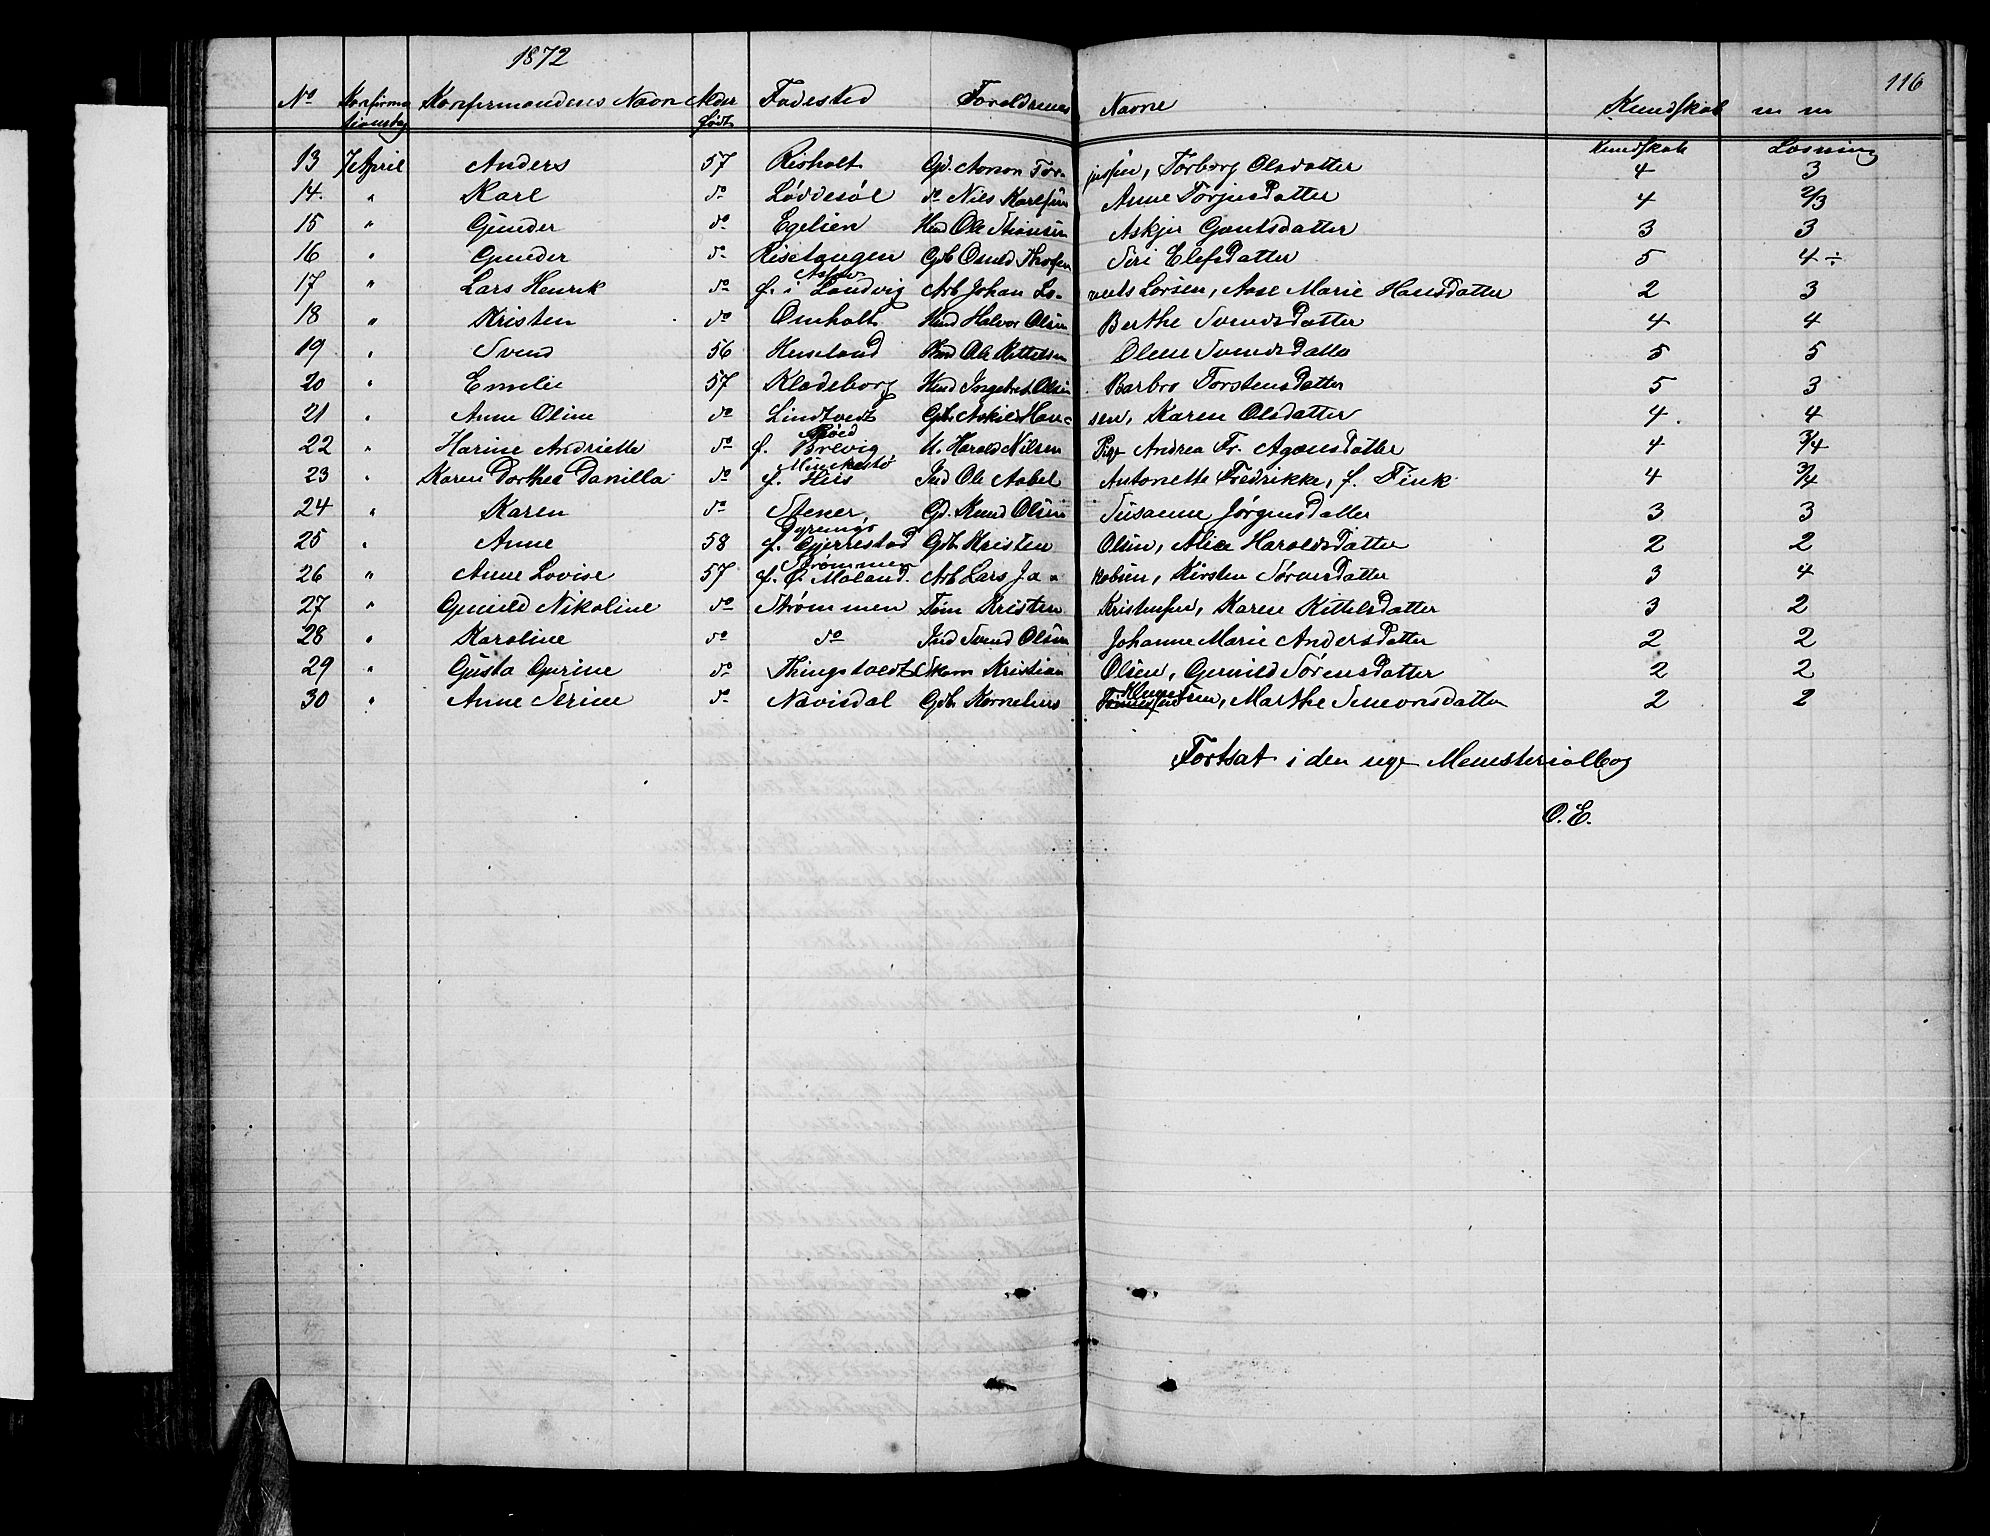 1872
116
No Konfirma Konfirmandenes Navn Alder Fødested Forældrenes Navne Kundskab m m
tionsdag født
Kundskab Læsning
13 7 April Anders 57 Risholt Gd. Aanon Tor- jussen, Torborg Olsdatter 4 3
14. " Karl do Løddesøl do Nils Karlsen Anne Torjusdatter 4 2/3
15 " Gunder do Egelien Hmd Ole Askjer Gontsdatter 3 3
16 " Gunder do Risetangen Gdb Siri Elefsdatter 5 4 ÷
17 " Lars Henrik do f. i Landvig Arb Johan La- Larsen, Aase Marie Hansdatter 2 3
18 " Kristen do Omholt Hmd Halvor Olsen Berthe Svendsdatter 4 4
19 " Svend 56 Huseland Hmd Ole Kittelsen Olene Svendsdatter 5 5
20 " Emelie 57 Kladeborg Hmd Ingebret Olsen Barbro Torstensdatter 5 3
21 " Anne Oline do Lindtvedt Gdb. Askild Han- sen, Karen Olsdatter 4 4
22 " Harine Andriette do f. Brevig U. Harald Nilsen Pige Andrea Fr. Agonsdatter 4 3/4
23 " Karen Dorthea Danilla do f. Hiis Ind Ole Aabel Antonette Fredrikke, f. Fink 4 3/4
24 " Karen do Stener Gd. Knud Olsen Susanne Jørgensdatter 3 3
25 " Anne 58 f. Gjerrestad Gdb. Kristen Olsen, Alice Haroldsdatter 2 2
Strømmen
26 " Anne Lovise 57 f. Ø. Moland. Arb Lars Ja- kobsen, Kirsten Sørensdatter 3 4
27 " Gunild Nikoline do Strømmen Tøm Kristen Kristensen, Karen Kittelsdatter 3 2
28 " Karoline do do Ind Svend Olsen Johanne Marie Andersdatter 2 2
29 " Gusta Gurine do Thingstvedt Skom Kristian Olsen, Gunild Sørensdatter 2 2
30 " Anne Serine do Navisdal Gdb Kornelius Marthe Simonsdatter 2 2
Fortsat i den nye Menesterialbog
O. E.